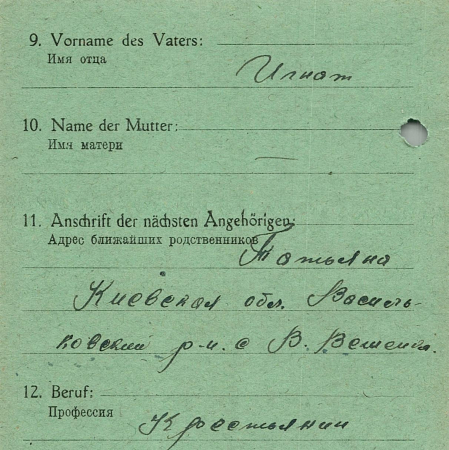 9. Vorname des Vaters:
Имя отца
Игнат
10. Name der Mutter:
Имя матери
—
11. Anschrift der nächsten Angehörigen:
Адрес ближайших родственников
Татьяна
Киевская обл. Василь-
ковский р-н. с В.
12. Beruf:
Профессия
Крестьянин